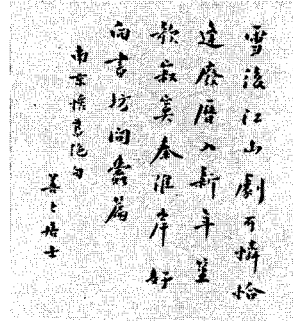 雪後江山劇可憐恰
逢廢曆入新年笙
歌寂寞秦淮岸好
向書坊問蠹篇
南京絕句
居士